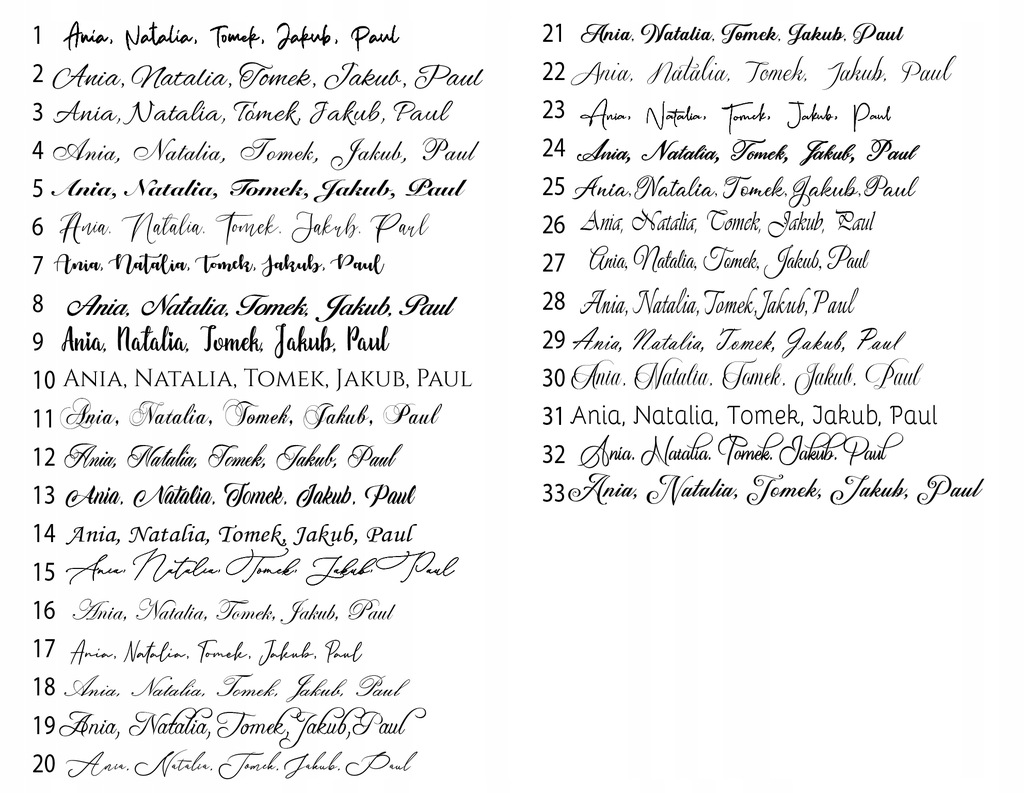 1 Ania, Natalia, Tomek, Jakub, Paul
2 Ania, Natalia, Tomek, Jakub, Paul
3 Ania, Natalia, Tomek, Jakub, Paul
4 Ania, Natalia, Tomek, Jakub, Paul
5 Ania, Natalia, Tomek, Jakub, Paul
6 Ania. Natalia. Tomek. Jakub. Paul
7 Ania, Natalia, Tomek, Jakub, Paul
8 Ania, Natalia, Tomek, Jakub, Paul
9 Ania, Natalia, Tomek, Jakub, Paul
10 ANIA, NATALIA, TOMEK, JAKUB, PAUL
11 Ania, Natalia, Tomek, Jakub, Paul
12 Ania, Natalia, Tomek, Jakub, Paul
13 Ania, Natalia, Tomek, Jakub, Paul
14 Ania, Natalia, Tomek, Jakub, Paul
15 Ania, Natalia, Tomek, Jakub, Paul
16 Ania, Natalia, Tomek, Jakub, Paul
17 Ania, Natalia, Tomek, Jakub, Paul
18 Ania, Natalia, Tomek, Jakub, Paul
19 Ania, Natalia, Tomek, Jakub, Paul
20 Ania, Natalia, Tomek, Jakub, Paul
21 Ania, Natalia, Tomek, Jakub, Paul
22 Ania, Natalia, Tomek, Jakub, Paul
23 Ania, Natalia, Tomek, Jakub, Paul
24 Ania, Natalia, Tomek, Jakub, Paul
25 Ania, Natalia, Tomek, Jakub, Paul
26 Ania, Natalia, Tomek, Jakub, Paul
27 Ania, Natalia, Tomek, Jakub, Paul
28 Ania, Natalia, Tomek, Jakub, Paul
29 Ania, Natalia, Tomek, Jakub, Paul
30 Ania, Natalia, Tomek, Jakub, Paul
31 Ania, Natalia, Tomek, Jakub, Paul
32 Ania, Natalia, Tomek, Jakub, Paul
33 Ania, Natalia, Tomek, Jakub, Paul